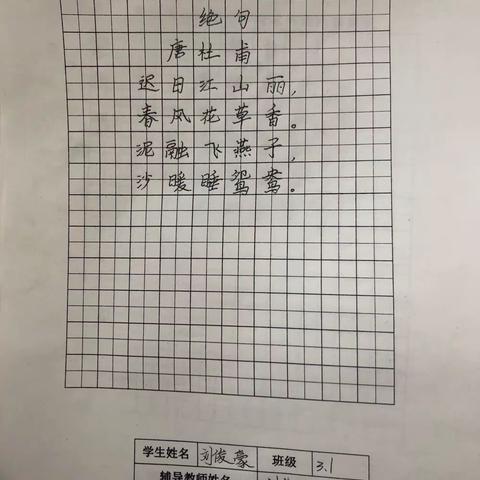 绝句
唐 杜甫
迟日江山丽，
春风花草香。
泥融飞燕子，
沙暖睡鸳鸯。
学生姓名 刘俊豪 班级 3.1
辅导教师姓名